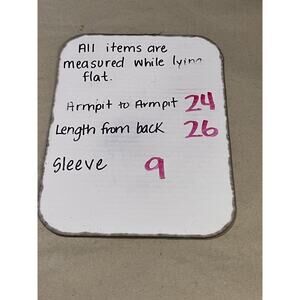 All items are
measured while lying
flat.
Armpit to Armpit 24
Length from back 26
Sleeve 9